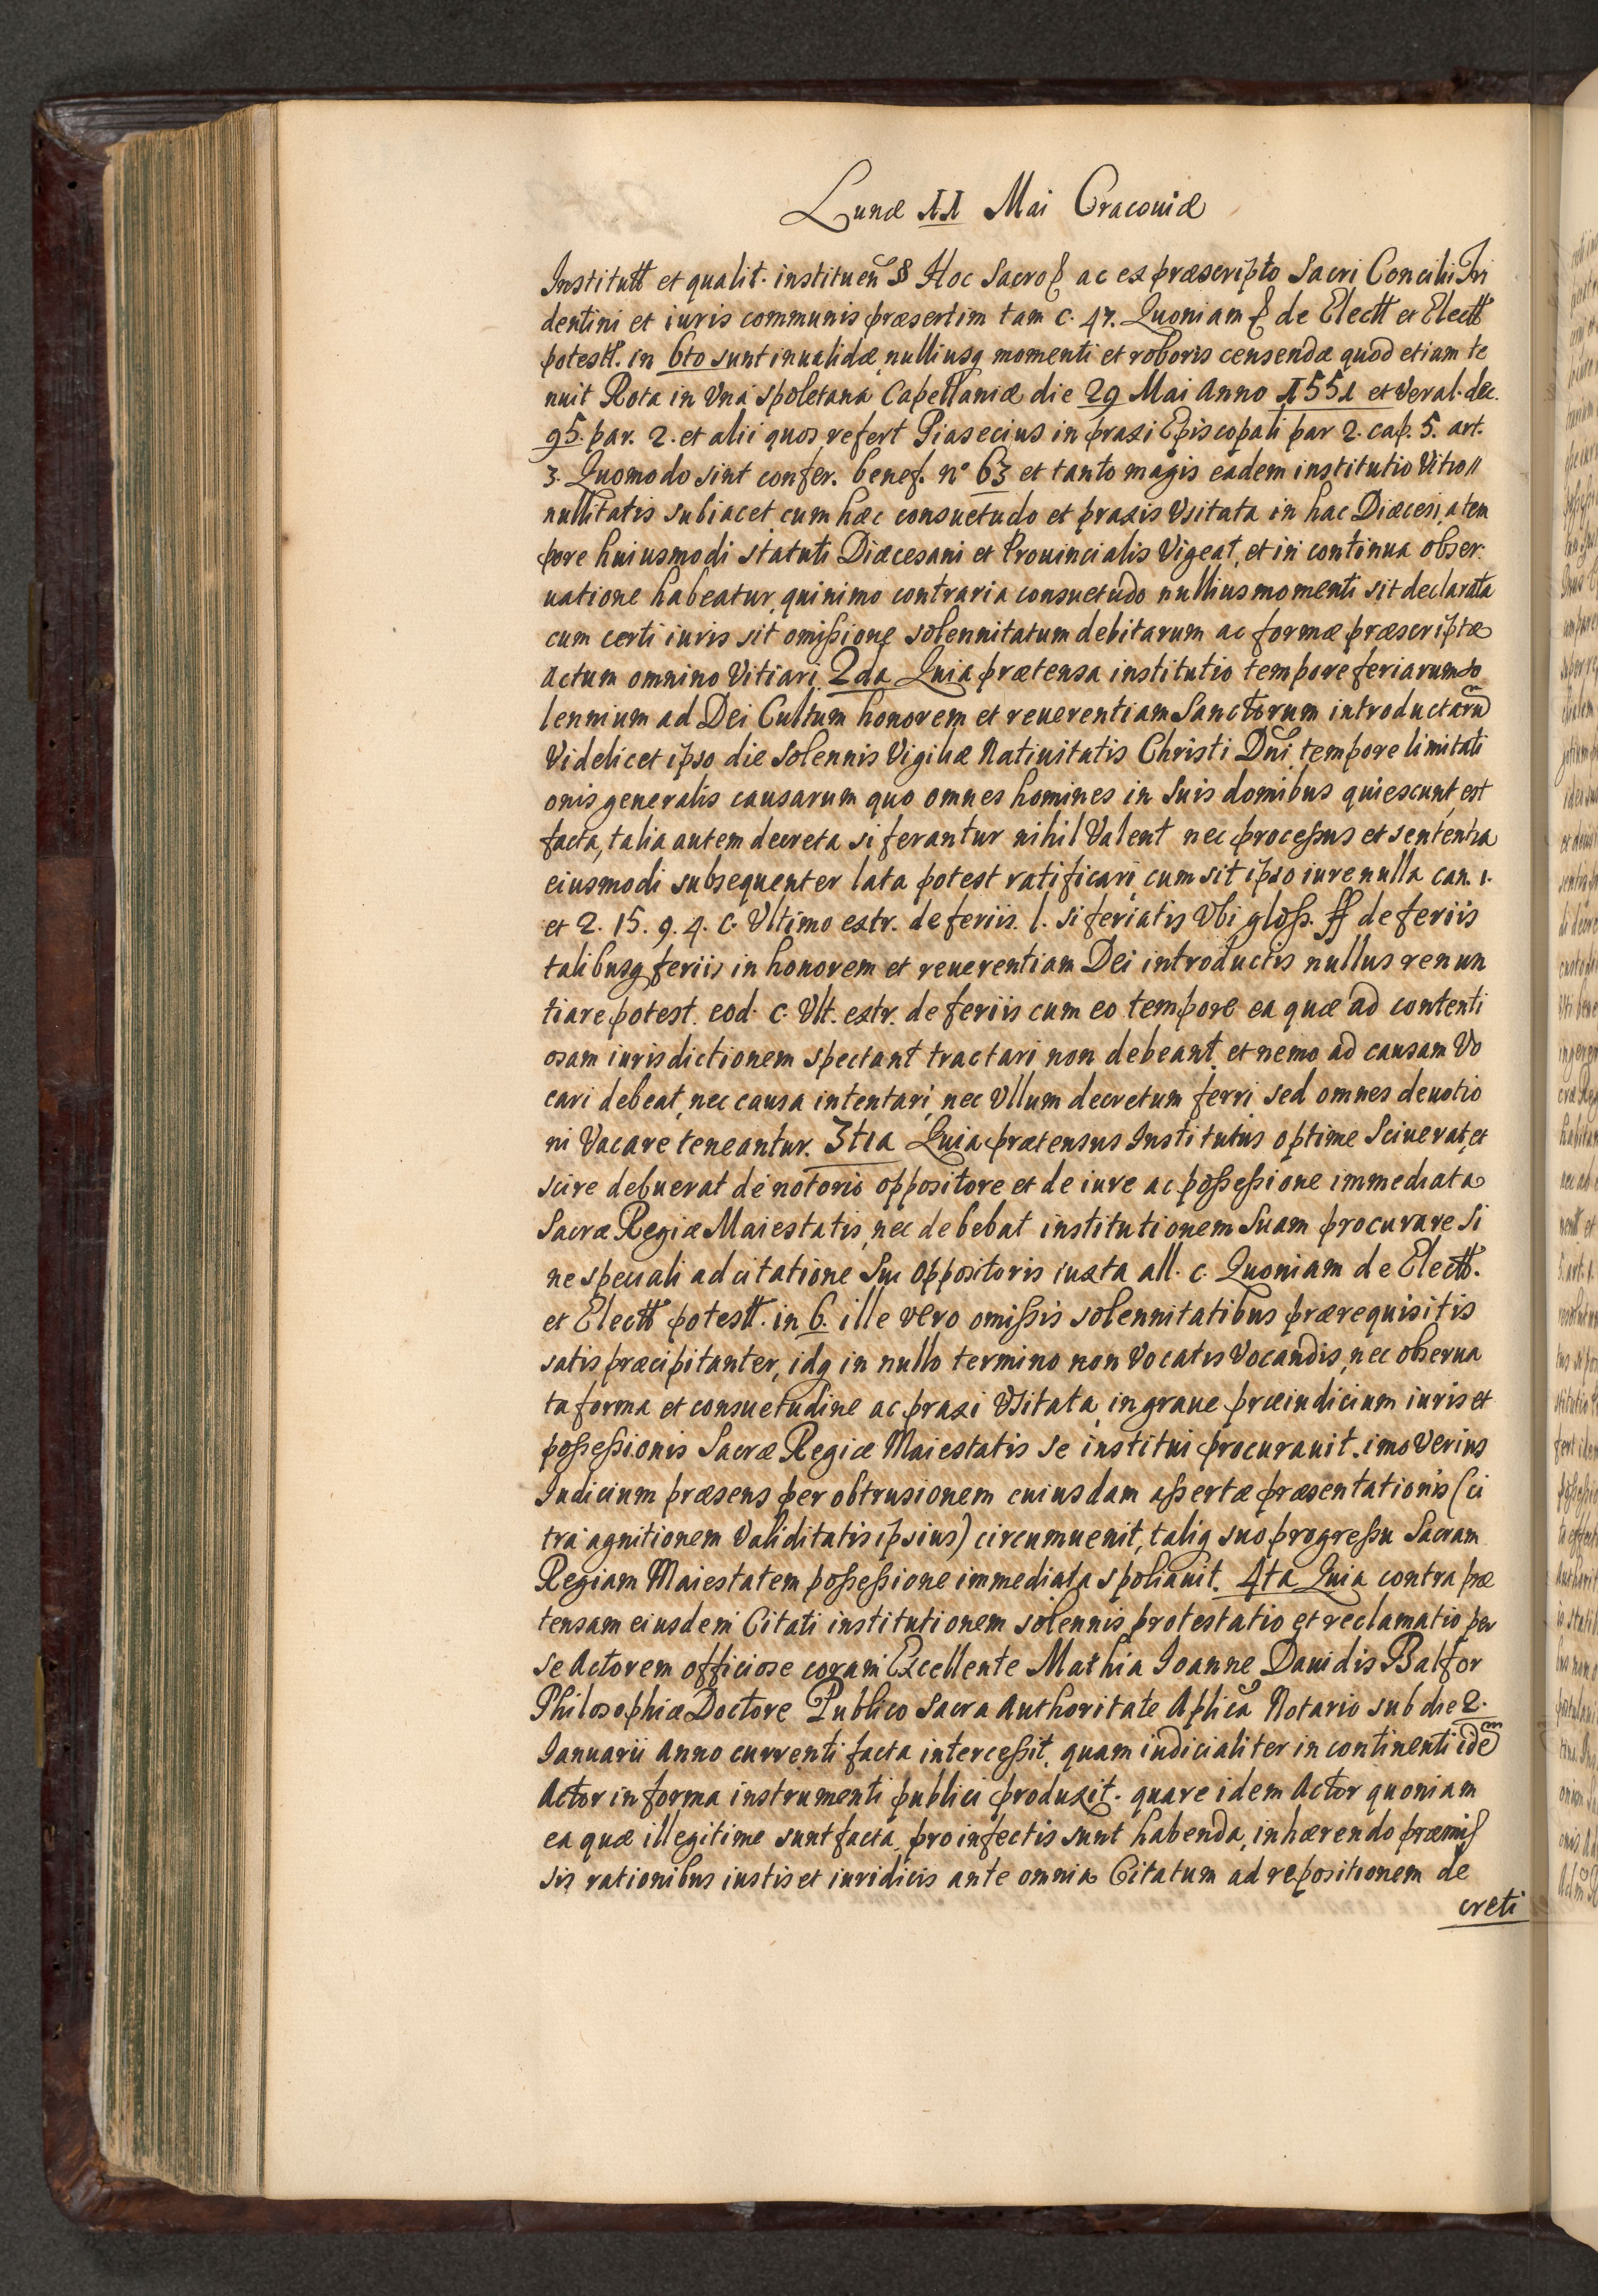 Lunæ 11 Mai Cracouiæ
Institutt et qualit. instituen̄ § Hoc Sacro ac ex præscripto Sacri Concilii Tri
dentini et iuris communis præsertim tam c. 47. Quoniam de Electt et Electt
potestt. in 6to sunt inualidæ nulliusq momenti et roboris censendæ quod etiam te
nuit Rota in Vna Spoletana Capellaniæ die 29 Mai Anno 1551 et Veral. dec.
95. par. 2. et alii quos refert Piasecius in praxi Episcopali par 2. cap. 5. art.
3. Quomodo sint confer. benef. n° 63 et tanto magis eadem institutio Vitio
nullitatis subiacet cum hæc consuetudo et praxis Vsitata in hac Diæcesi, a tem
pore huiusmodi statuti Diæcesani et Prouincialis Vigeat, et in continua obser:
uatione habeatur, quinimo contraria consuetudo nullius momenti sit declarata
cum certi iuris sit omissione solennitatum debitarum ac formæ præscriptæ
Actum omnino Vitiari 2da Quia prætensa institutio tempore feriarum so
lennium ad Dei Cultum honorem et reuerentiam Sanctorum introductarū
Videlicet ipso die Solennis Vigiliæ Natiuitatis Christi Dn̄i tempore limitati
onis generalis causarum quo omnes homines in Suis domibus quiescunt, est
facta, talia autem decreta si ferantur nihil Valent nec processus et sententia
eiusmodi subsequenter lata potest ratificari, cum sit ipso iure nulla can. 1.
et 2. 15. q. 4. c. Vltimo extr. de feriis. l. si feriatis Vbi gloss. ff de feriis
talibusq feriis in honorem et reuerentiam Dei introductis nullus renun
tiare potest. eod. c. Vlt. extr. de feriis cum eo tempore ea quæ ad contenti
osam iurisdictionem spectant tractari non debeant et nemo ad causam Vo
cari debeat, nec causa intentari, nec Vllum decretum ferri sed omnes deuotio
ni Vacare teneantur. 3tia Quia prætensus Institutus optime Sciuerat, et
scire debuerat de notorio oppositore et de iure ac possessione immediata
Sacræ Regiæ Maiestatis, nec debebat institutionem Suam procurare Si
ne speciali adcitatione Sui Oppositoris iuxta all. c. Quoniam de Electt.
et Electt potestt. in 6. ille vero omissis solennitatibus prærequisitis
satis præcipitanter, idq in nullo termino non Vocatis Vocandis, nec obserua
ta forma et consuetudine ac praxi Vsitata in graue præiudicium iuris et
possessionis Sacræ Regiæ Maiestatis se institui procurauit. imo Verius
Iudicium præsens per obtrusionem cuiusdam assertæ præsentationis (ci
tra agnitionem Validitatis ipsius) circumuenit, taliq suo progressu Sacram
Regiam Maiestatem possessione immediata spoliauit. 4ta Quia contra præ
tensam eiusdem Citati institutionem solennis protestatio et reclamatio per
se Actorem officiose coram Excellente Mathia Ioanne Dauidis Balfor
Philosophiæ Doctore Publico Sacra Authoritate Aplica Notario sub die 2.
Ianuarii Anno currenti facta intercessit, quam iudicialiter in continenti idem
Actor in forma instrumenti publici produxit. quare idem Actor quoniam
ea quæ illegitime sunt facta, pro infectis sunt habenda, inhærendo præmis
sis rationibus iustis et iuridicis ante omnia Citatum ad repositionem de
creti